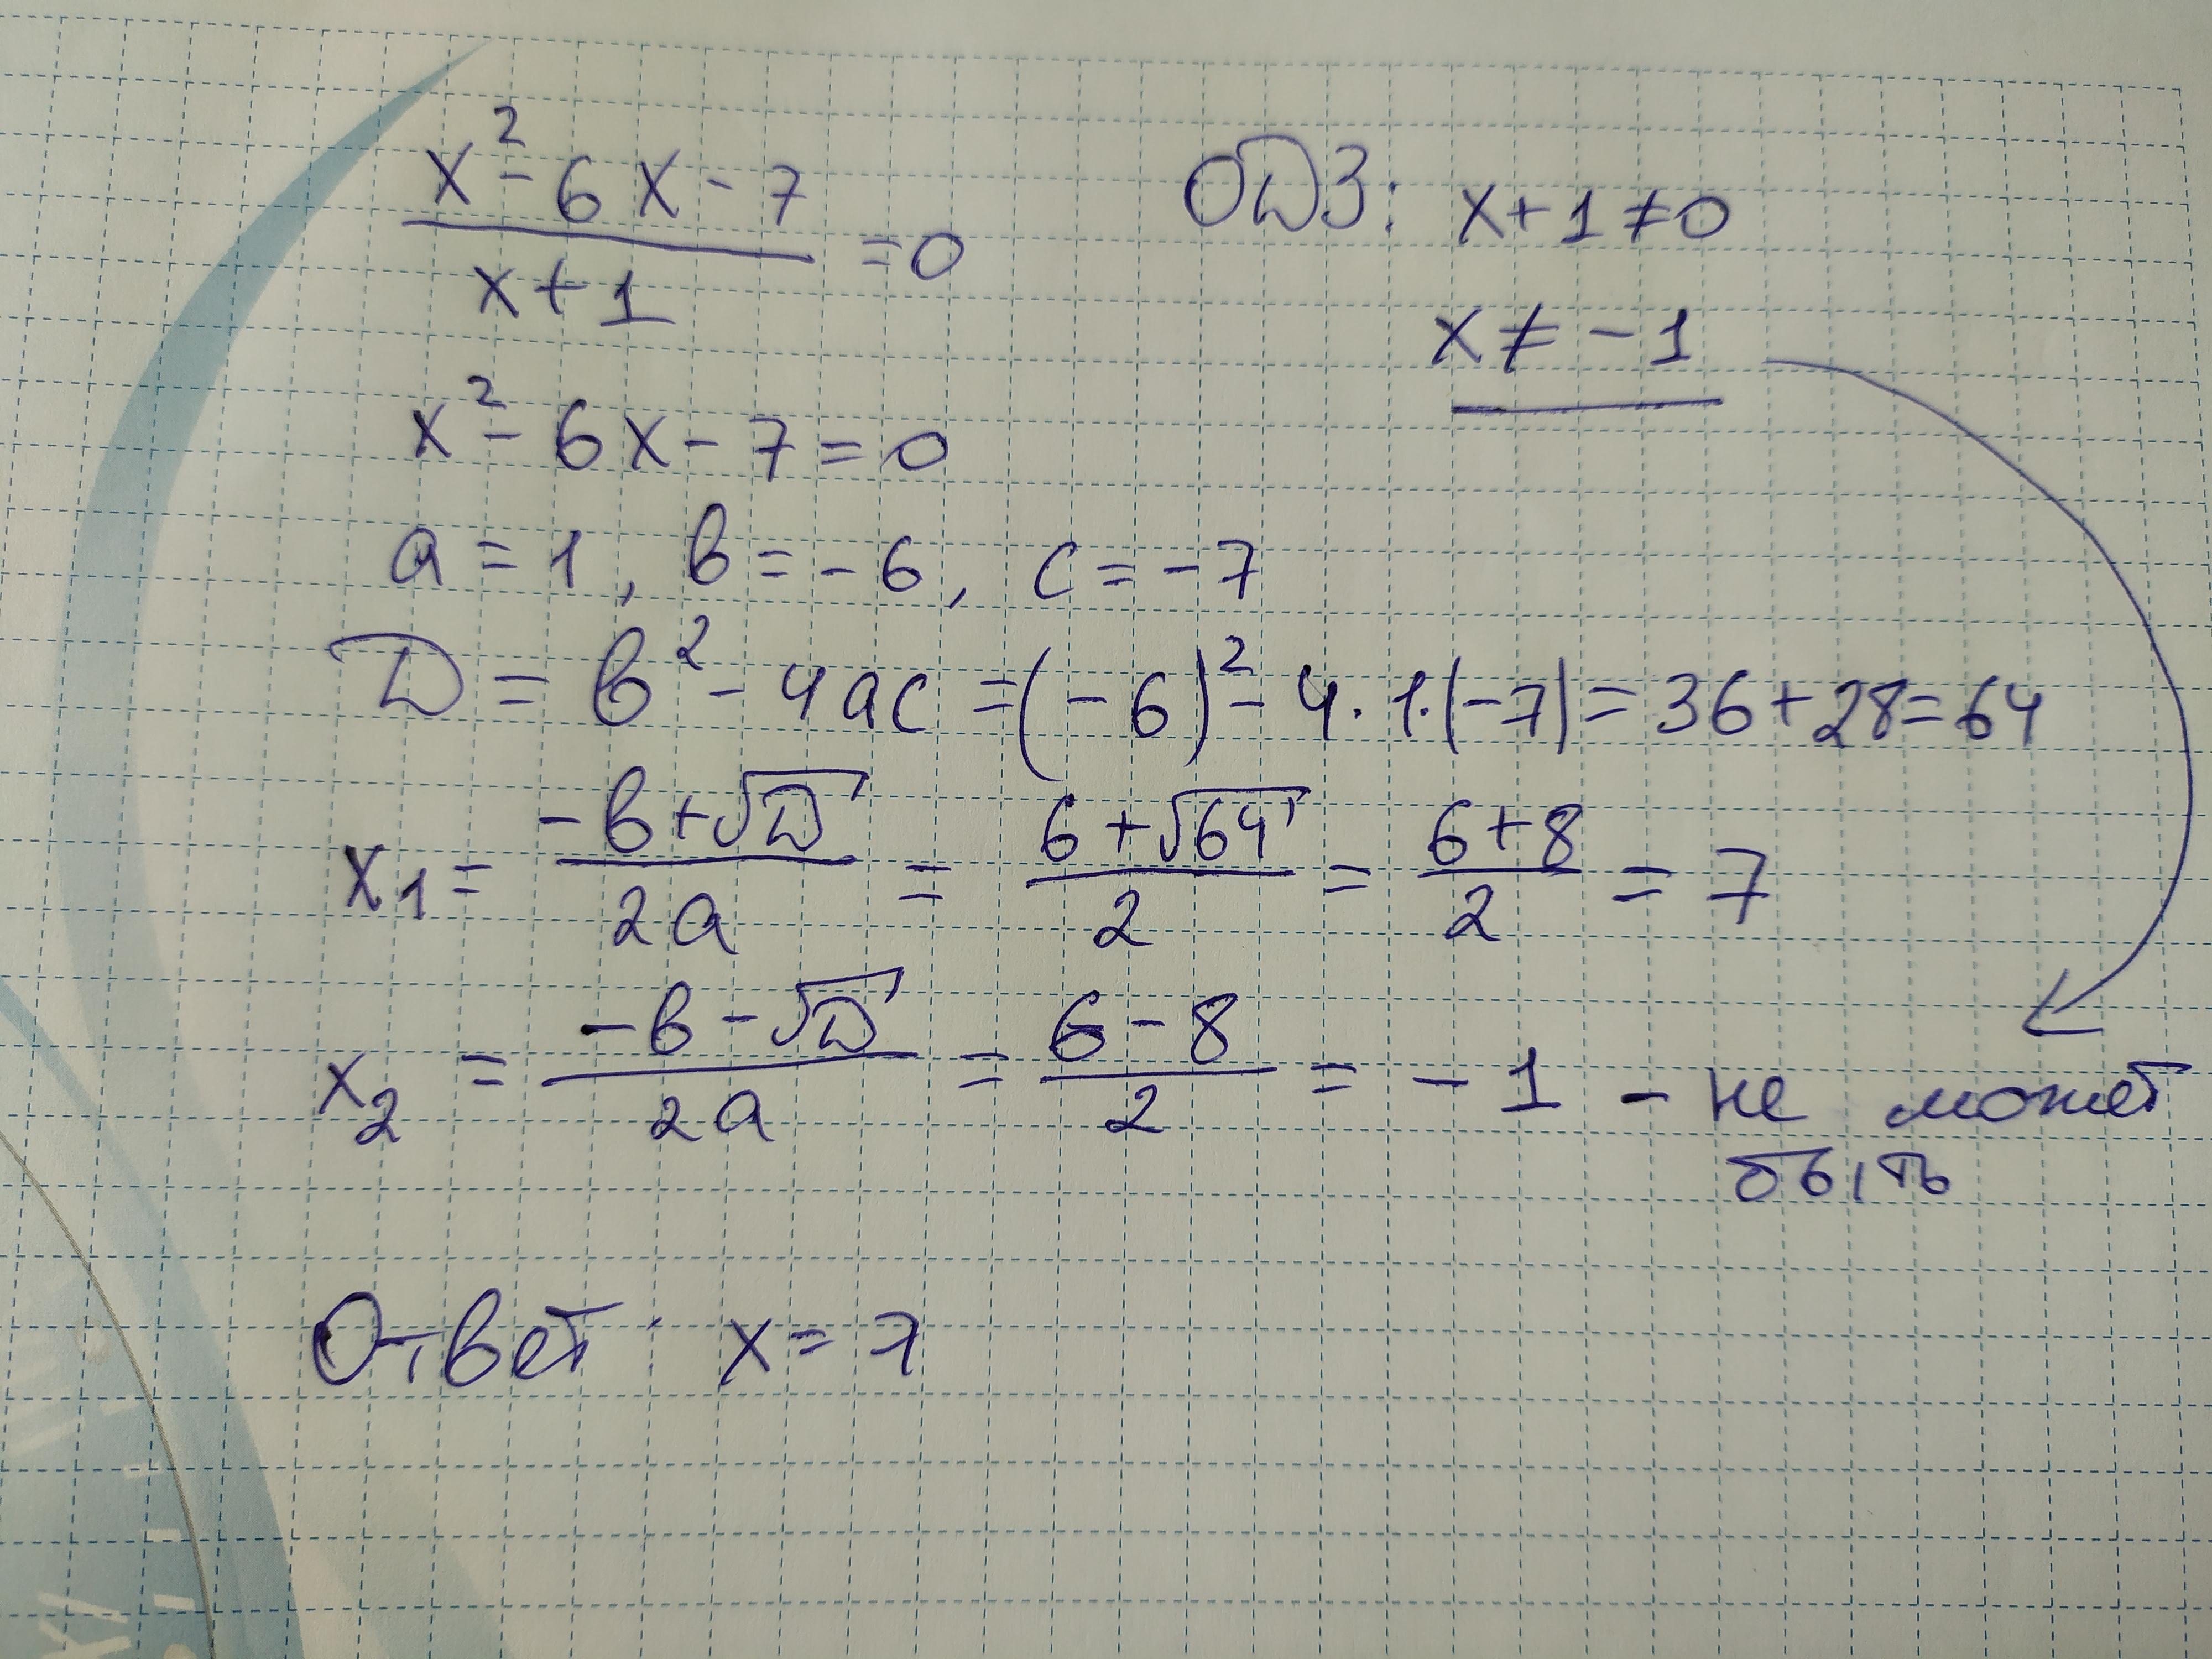 (x² - 6x - 7)/(x + 1) = 0
ОДЗ: x + 1 ≠ 0
x ≠ -1
x² - 6x - 7 = 0
a = 1, b = -6, c = -7
D = b² - 4ac = (-6)² - 4·1·(-7) = 36 + 28 = 64
x₁ = (-b + √D)/(2a) = (6 + √64)/2 = (6 + 8)/2 = 7
x₂ = (-b - √D)/(2a) = (6 - 8)/2 = -1 - не может
быть
Ответ: x = 7